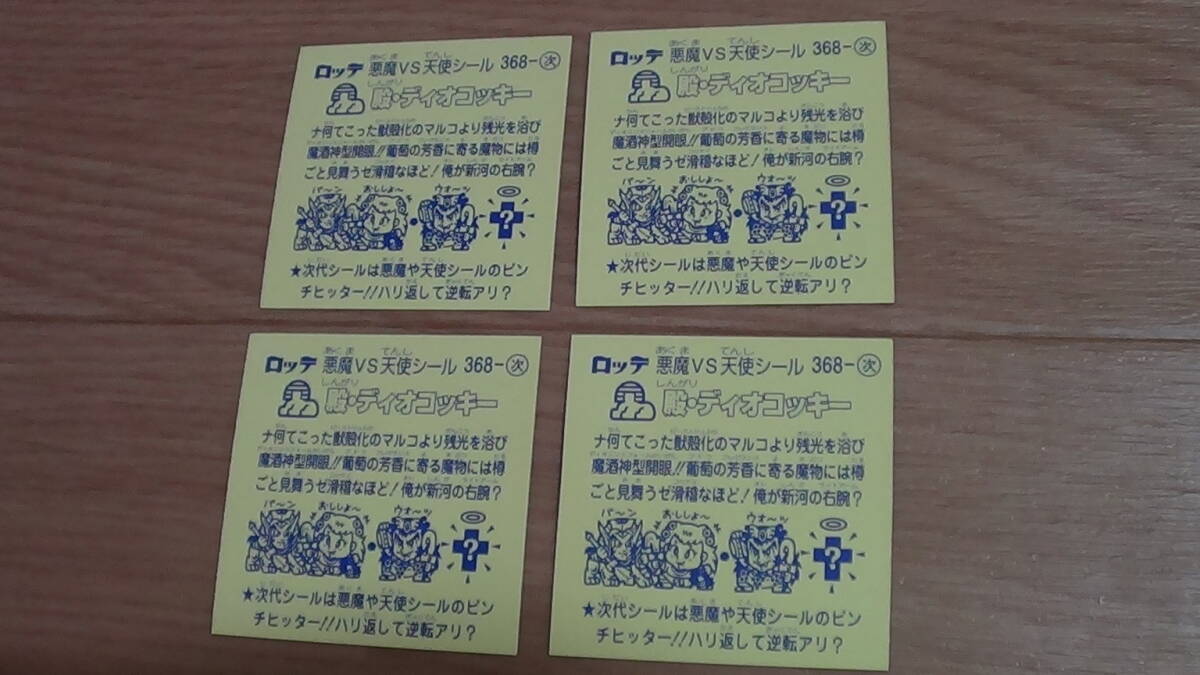 ロッテ 悪魔VS天使シール 368-次
殿・ディオコッキー
ナ何てこった獣殻化のマルコより残光を浴び
魔酒神型開眼!!葡萄の芳香に寄る魔物には樽
ごと見舞うゼ滑稽なほど!俺が新河の右腕?
バ〜ン おししょ〜 ウォ〜ッ
?
★次代シールは悪魔や天使シールのピン
チヒッター!!ハリ返して逆転アリ?
ロッテ 悪魔VS天使シール 368-次
殿・ディオコッキー
ナ何てこった獣殻化のマルコより残光を浴び
魔酒神型開眼!!葡萄の芳香に寄る魔物には樽
ごと見舞うゼ滑稽なほど!俺が新河の右腕?
バ〜ン おししょ〜 ウォ〜ッ
?
★次代シールは悪魔や天使シールのピン
チヒッター!!ハリ返して逆転アリ?
ロッテ 悪魔VS天使シール 368-次
殿・ディオコッキー
ナ何てこった獣殻化のマルコより残光を浴び
魔酒神型開眼!!葡萄の芳香に寄る魔物には樽
ごと見舞うゼ滑稽なほど!俺が新河の右腕?
バ〜ン おししょ〜 ウォ〜ッ
?
★次代シールは悪魔や天使シールのピン
チヒッター!!ハリ返して逆転アリ?
ロッテ 悪魔VS天使シール 368-次
殿・ディオコッキー
ナ何てこった獣殻化のマルコより残光を浴び
魔酒神型開眼!!葡萄の芳香に寄る魔物には樽
ごと見舞うゼ滑稽なほど!俺が新河の右腕?
バ〜ン おししょ〜 ウォ〜ッ
?
★次代シールは悪魔や天使シールのピン
チヒッター!!ハリ返して逆転アリ?